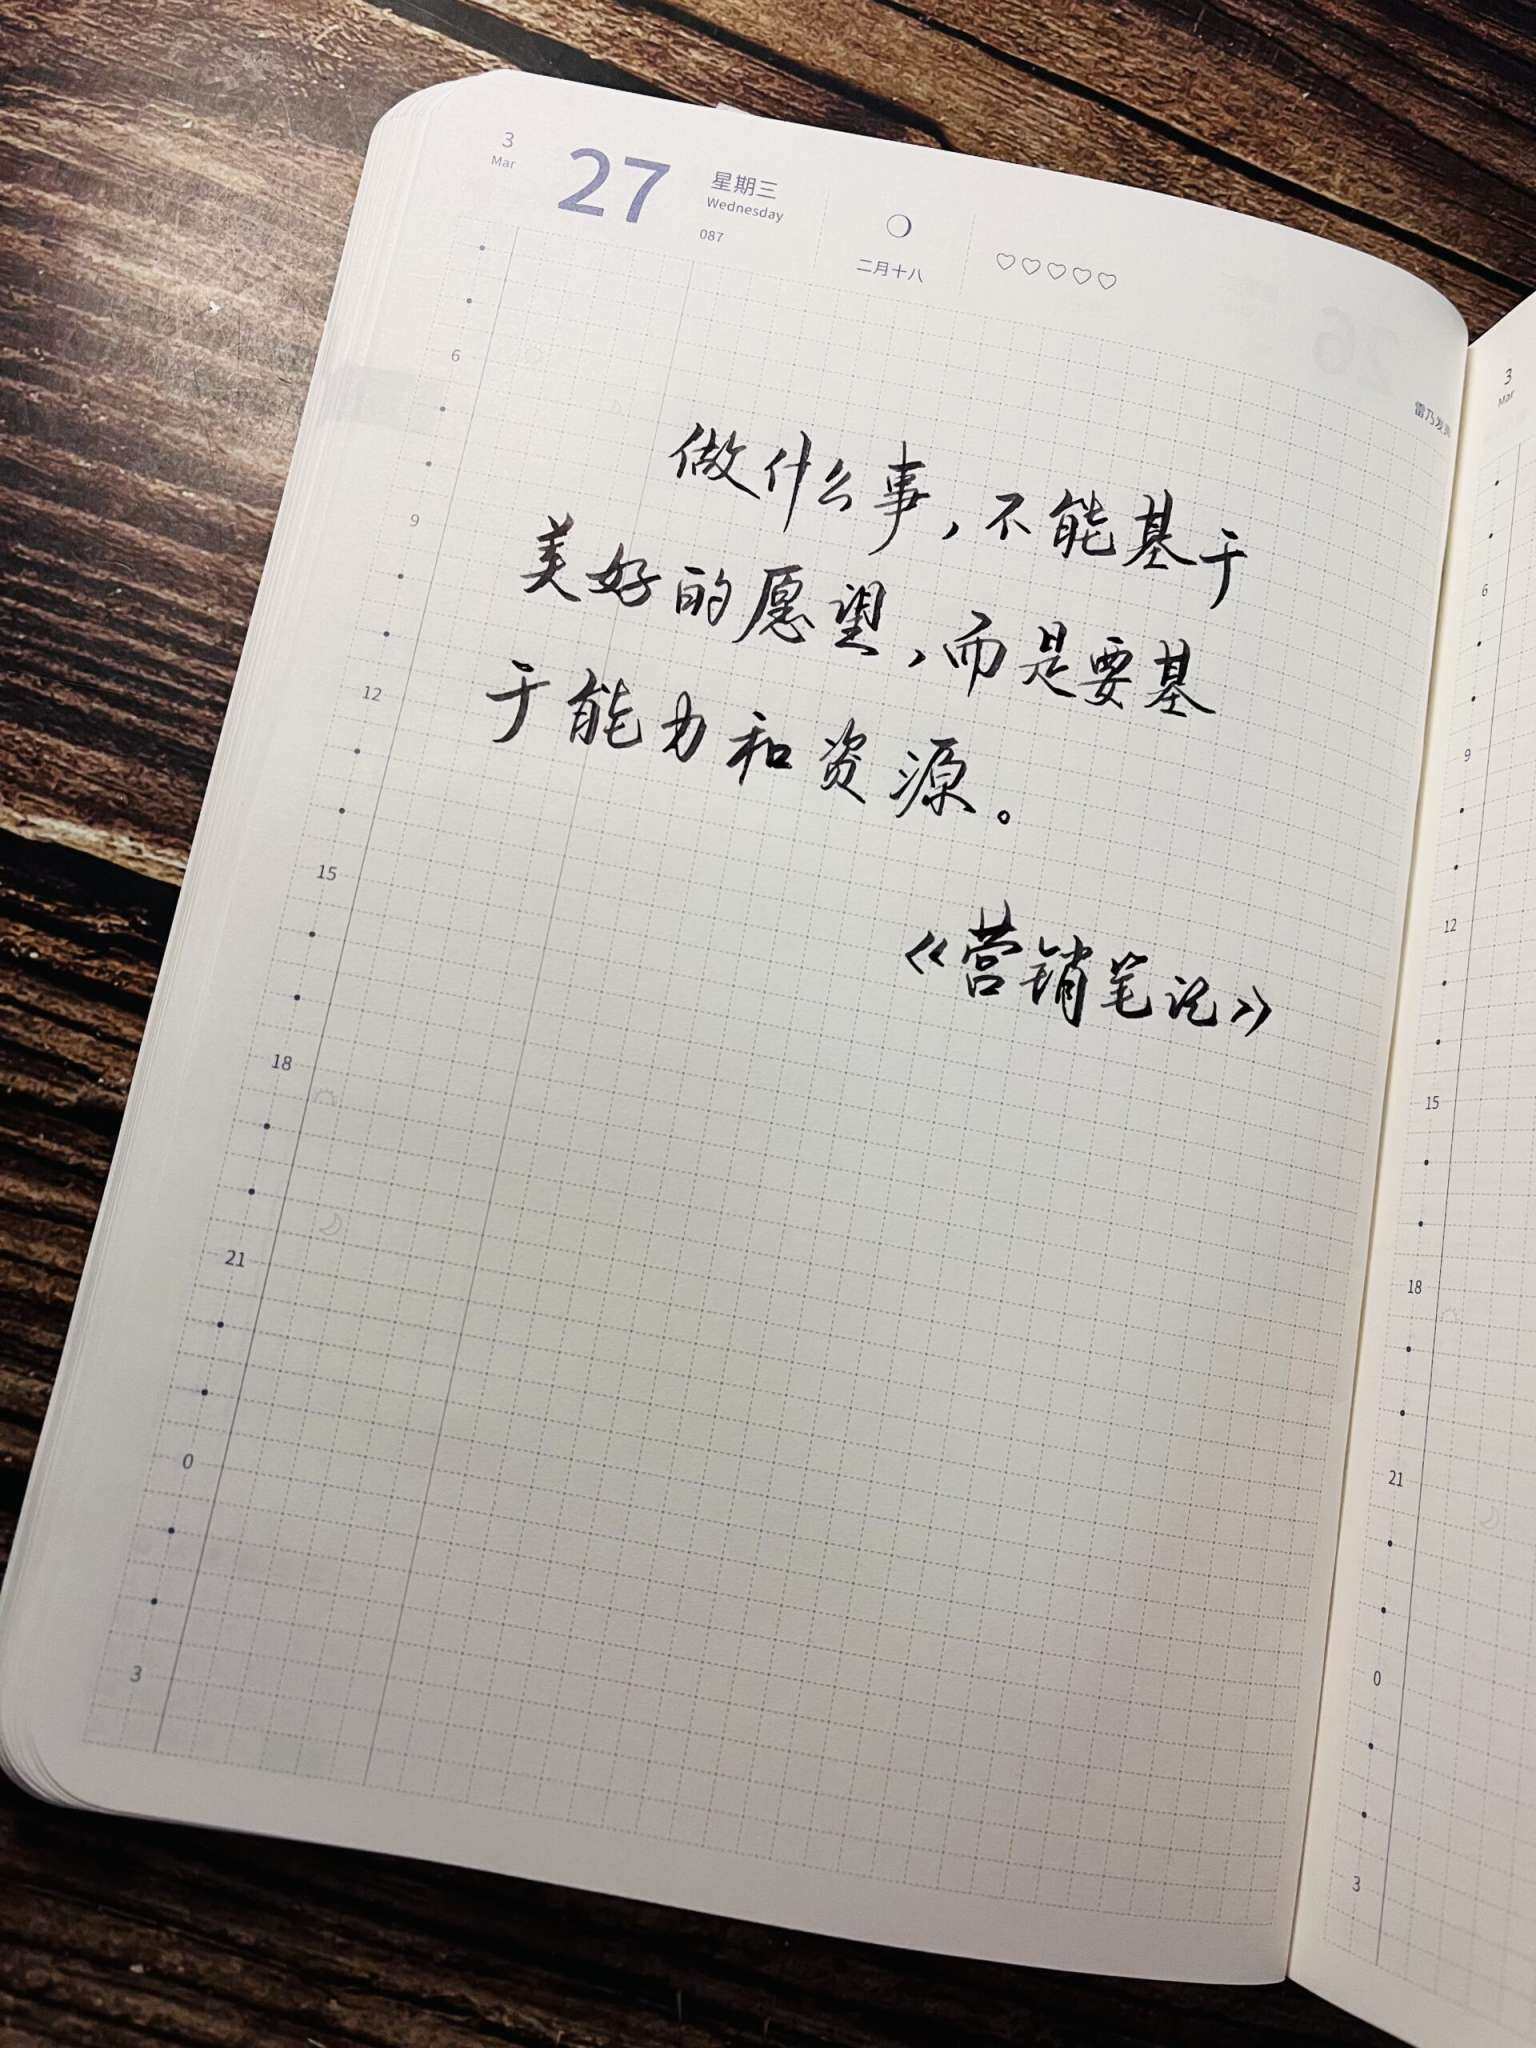 3
Mar
27
星期三
Wednesday
087
二月十八
26
6
9
12
15
18
21
0
3
做什么事，不能基于
美好的愿望，而是要基
于能力和资源。
《营销笔记》
3
Mar
6
9
12
15
18
21
0
3